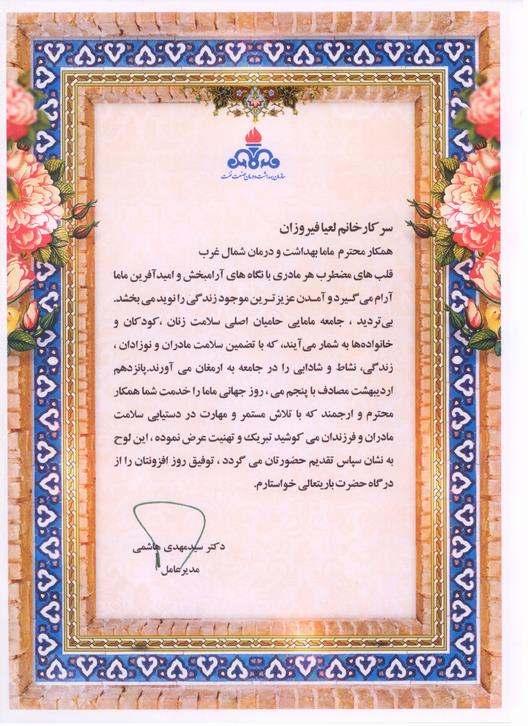 سازمان بهداشت و درمان صنعت نفت
سرکار خانم لعیا فیروزان
همکار محترم ماما بهداشت و درمان شمال غرب
قلب های مضطرب هر مادری با نگاه های آرامبخش و امیدآفرین ماما
آرام می گیرد و آمدن عزیزترین موجود زندگی را نوید می بخشد.
بی‌تردید ، جامعه مامایی حامیان اصلی سلامت زنان ،کودکان و
خانواده‌ها به شمار می‌آیند، که با تضمین سلامت مادران و نوزادان ،
زندگی، نشاط و شادابی را در جامعه به ارمغان می آورند.پانزدهم
اردیبهشت مصادف با پنجم می ، روز جهانی ماما را خدمت شما همکار
محترم و ارجمند که با تلاش مستمر و مهارت در دستیابی سلامت
مادران و فرزندان می کوشید تبریک و تهنیت عرض نموده ، این لوح
به نشان سپاس تقدیم حضورتان می گردد ، توفیق روز افزونتان را از
درگاه حضرت باریتعالی خواستارم.
دکتر سیدمهدی هاشمی
مدیرعامل